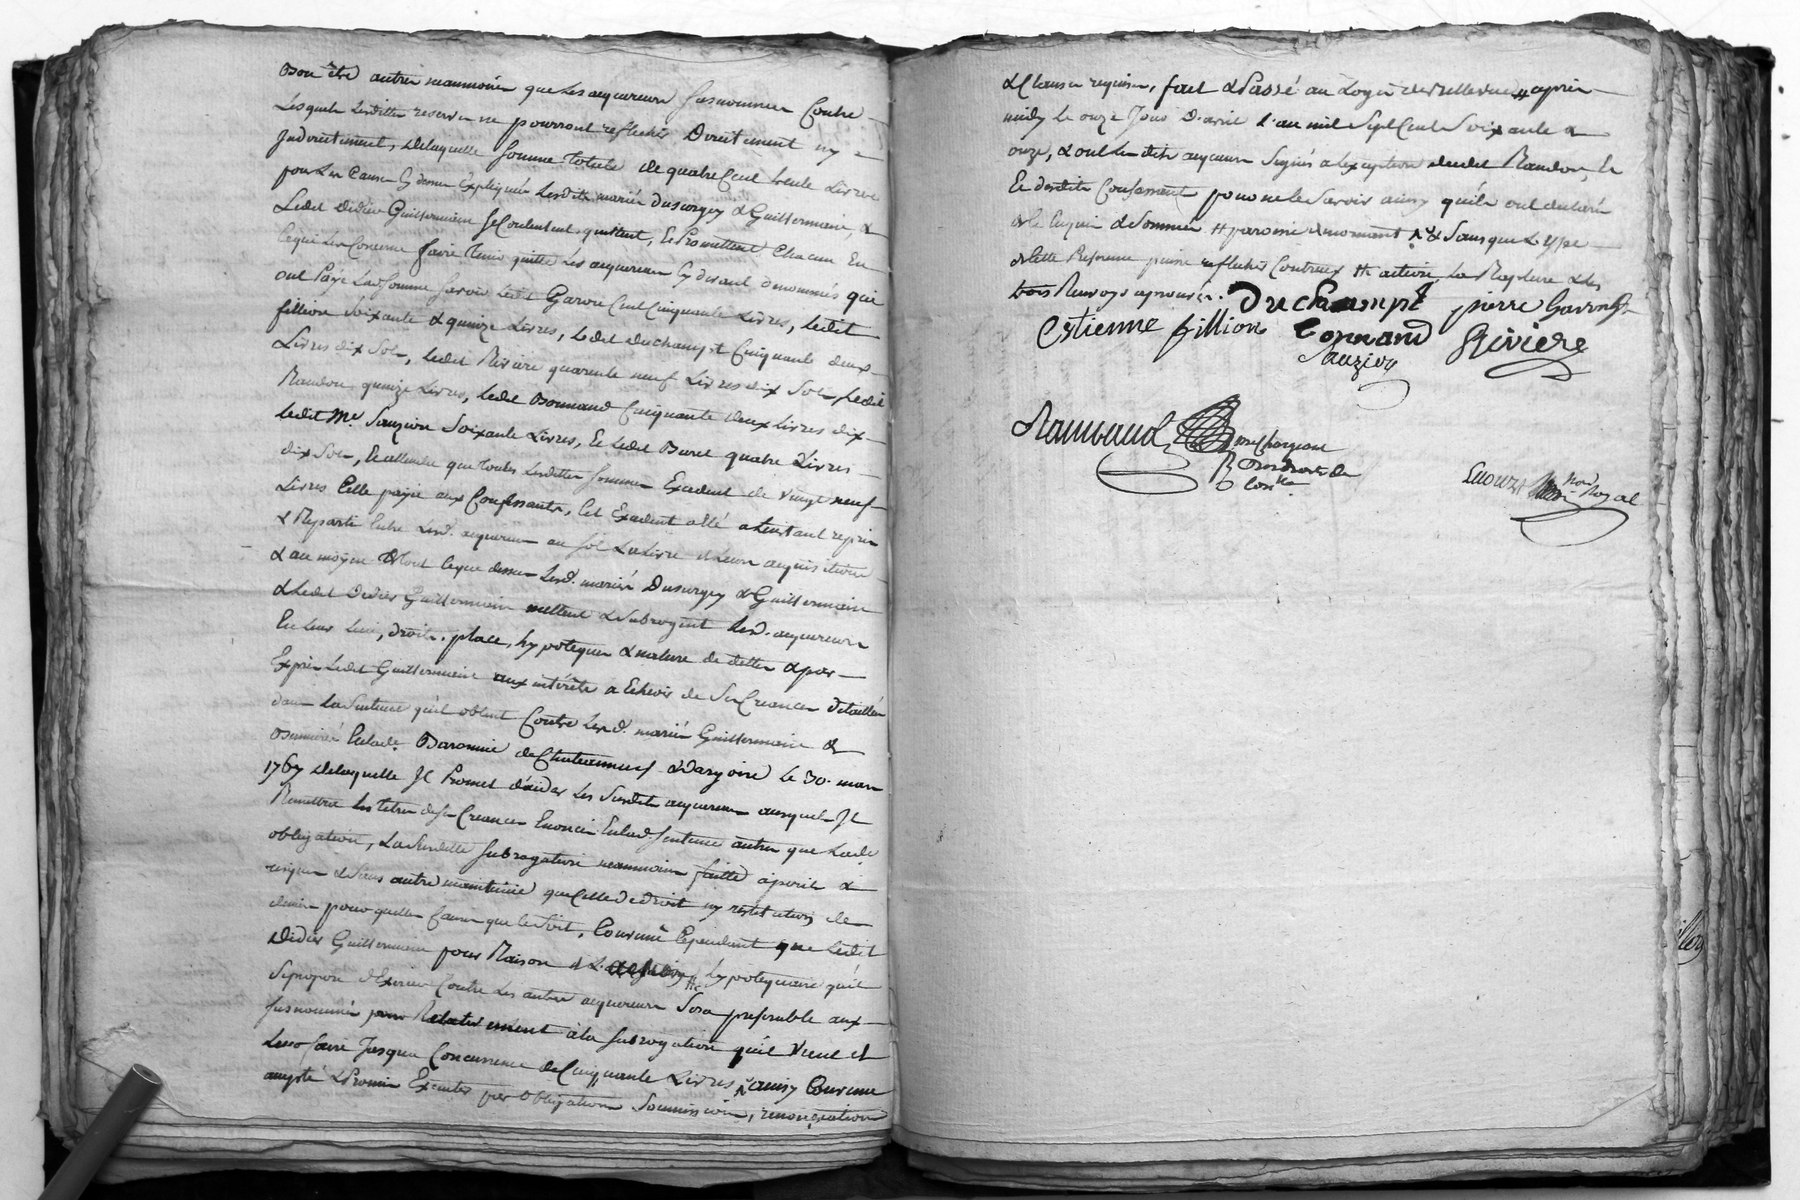 Bon être autres neanmoins que les acquereurs susnommés Contre
Lesquels lesdittes reserves ne pourront reflechir Directement ny
Indirectement, delaquelle somme totale de quatre Cent trente Livres
pour les Causes Cy dessus Expliquées Lesdits mariés Dusurgey & Guillermain, &
Ledit Didier Guillermain se Contentent, quittent, & Promettent Chacun En
cequi les Concerne faire tenir quitte les acquereurs Cy devant denommés qui
ont Payé lad. somme savoir ledit Garon Cent Cinquante Livres, ledit
fillion soixante & quinze Livres, ledit duchampt Cinquante deux
Livres dix Sols, ledit Riviere quarante neuf Livres dix Sols, ledit
Raudon quinze Livres, ledit Bonnand Cinquante deux Livres dix
ledit Me. Sauzion Soixante Livres, Et ledit Buret quatre Livres
dix Sols, Et attendu que toutes lesdittes sommes Excedent de vingt neuf
Livres Celle payée aux Confessants, Cet Excedent a été à l'instant repris
& Reparti Entre lesd. acquereurs au sol La Livre de leurs acquisitions
& au moyen de tout ceque dessus lesd. mariés Dusurgey & Guillermain
& Ledit Didier Guillermain mettent & subrogent lesd. acquereurs
En leur lieu, droit, place, hypoteques & nature de dettes & par
Exprès Ledit Guillermain aux intérêts a Echeoir de Ses Creances détaillées
dans La Sentence qu'il obtint Contre lesd. mariés Guillermain &
Enlad. Baronnie de Chateauneuf & Dargoire le 30. mars
1767 delaquelle Il Promet d'aider les Susdits acquereurs auxquels Il
Remettra les titres de ses Creances Enoncés Enlad. Sentence autres que Lad.
obligation, La Susditte subrogation neanmoins faitte à perils &
risques & sans autre maintenue que Celle de droit ny restitution de
deniers pour quelle Cause que ce soit, Convenu Cependant que ledit
Didier Guillermain pour Raison de L' hypotequaire qu'il
se propose d'Exercer Contre les autres acquereurs Sera preferable aux
susnommés pour Relativement à la subrogation qu'il vient de
Leur faire Jusqua Concurrence de Cinquante Livres, ainsy Convenu
accepté & Promis Executer par obligations Soumissions, renonciations
& Clauses requises, fait & Passé au Logis de Bellevue, après
midy le onze Jour d'avril L'an mil Sept Cent Soixante &
onze, & ont lesdits acquereurs Signés a l'exception dudit Raudon, &
Et desdits Confessants pour ne le Savoir ainsy qu'ils ont declaré
de ce Enquis & Sommés # paroisse de mornant & Sans que L'ypo
de Cette Reserve puisse reflechir Contreux # action, La Rayeure & les
trois Renvoys aprouvés. Duchampt pierre Garon
Estienne fillion Bonnand Riviere
Sauzion
Raimbaud
Laoure No.re Royal